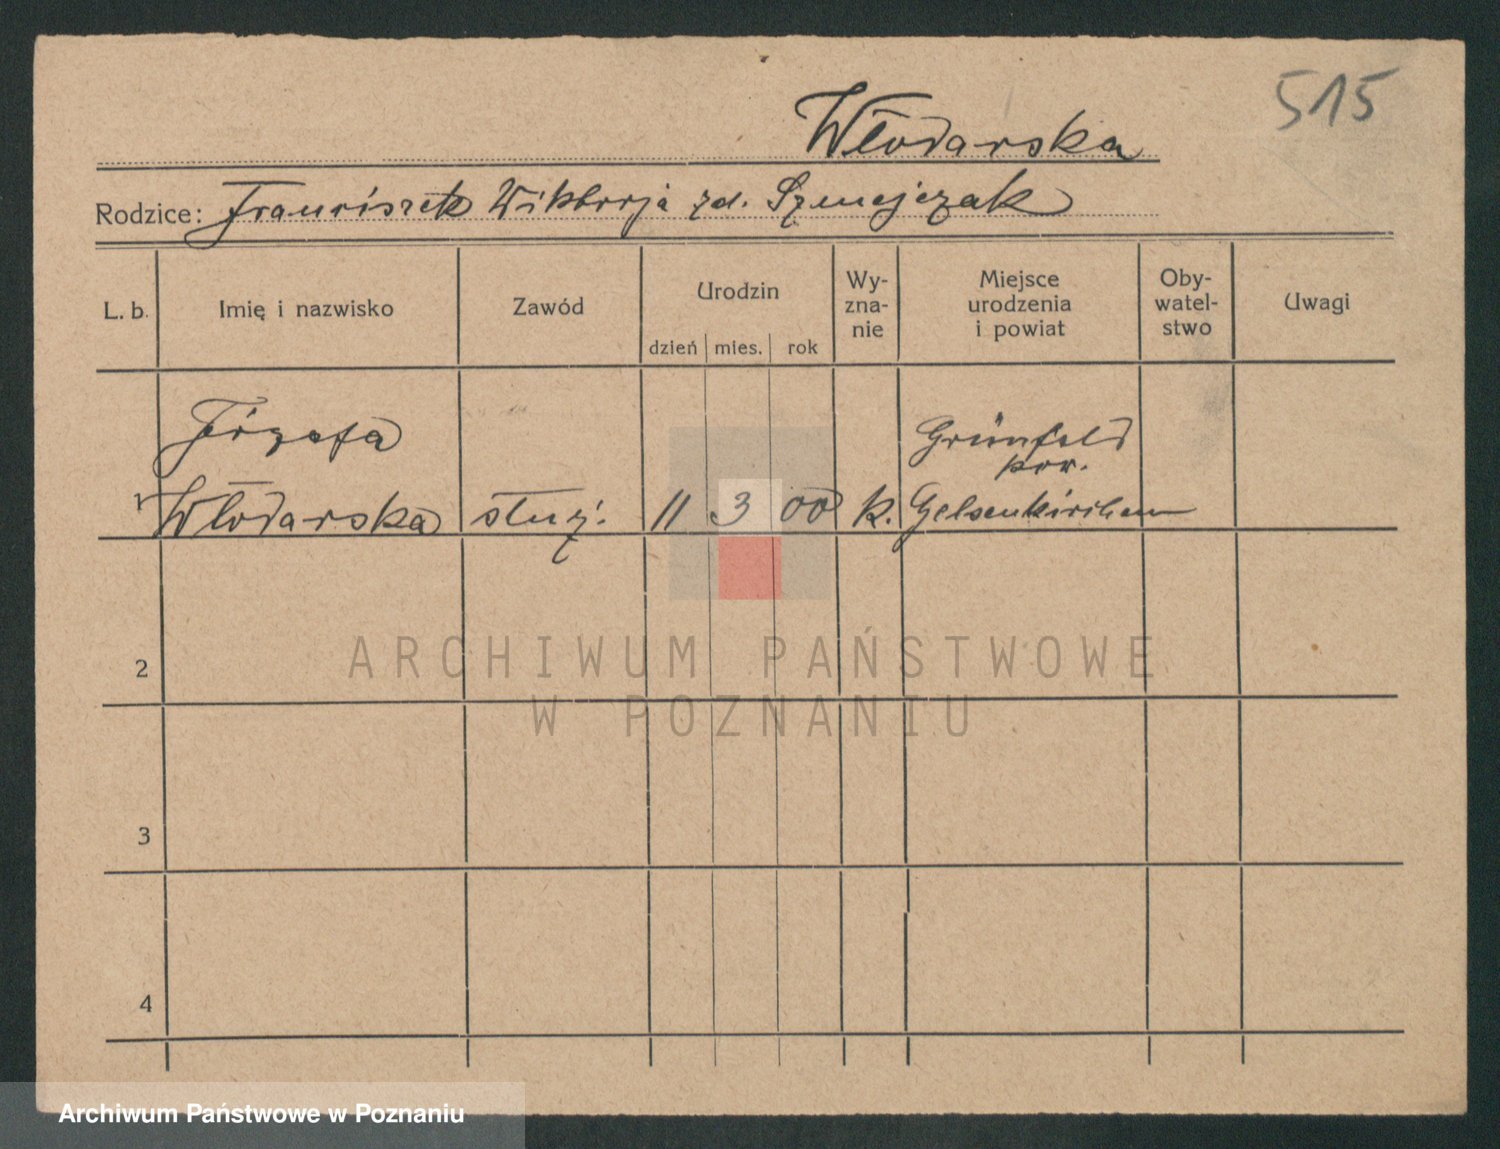 515
Włodarska
Rodzice: Franciszek Wiktorja zd. Szmejczak
L. b. Imię i nazwisko Zawód Urodzin dzień mies. rok Wy-znanie Miejsce urodzenia i powiat Oby-watel-stwo Uwagi
Józefa Grünfeld
pow.
1 Włodarska służ. 11 3 00 k. Gelsenkirchen
ARCHIWUM PAŃSTWOWE
2
W POZNANIU
3
4
Archiwum Państwowe w Poznaniu